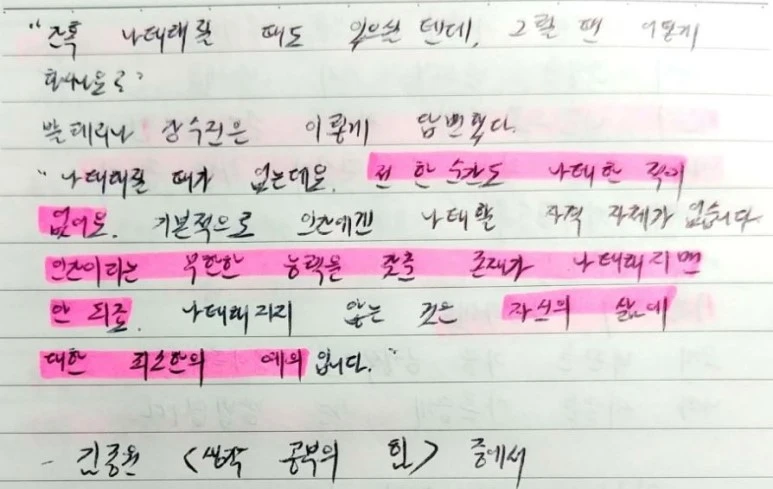 "간혹 나태해질 때도 있으실 텐데, 그럴 땐 어떻게
하나요?"
발레리나 강수진은 이렇게 답변했다.
"나태해질 때가 없는데요. 전 한 순간도 나태한 적이
없어요. 기본적으로 인간에겐 나태할 자격 자체가 없습니다.
인간이라는 무한한 능력을 갖춘 존재가 나태해지면
안 되죠. 나태해지지 않는 것은 자신의 삶에
대한 최소한의 예의입니다."
- 김종원 <생각 공부의 힘> 중에서